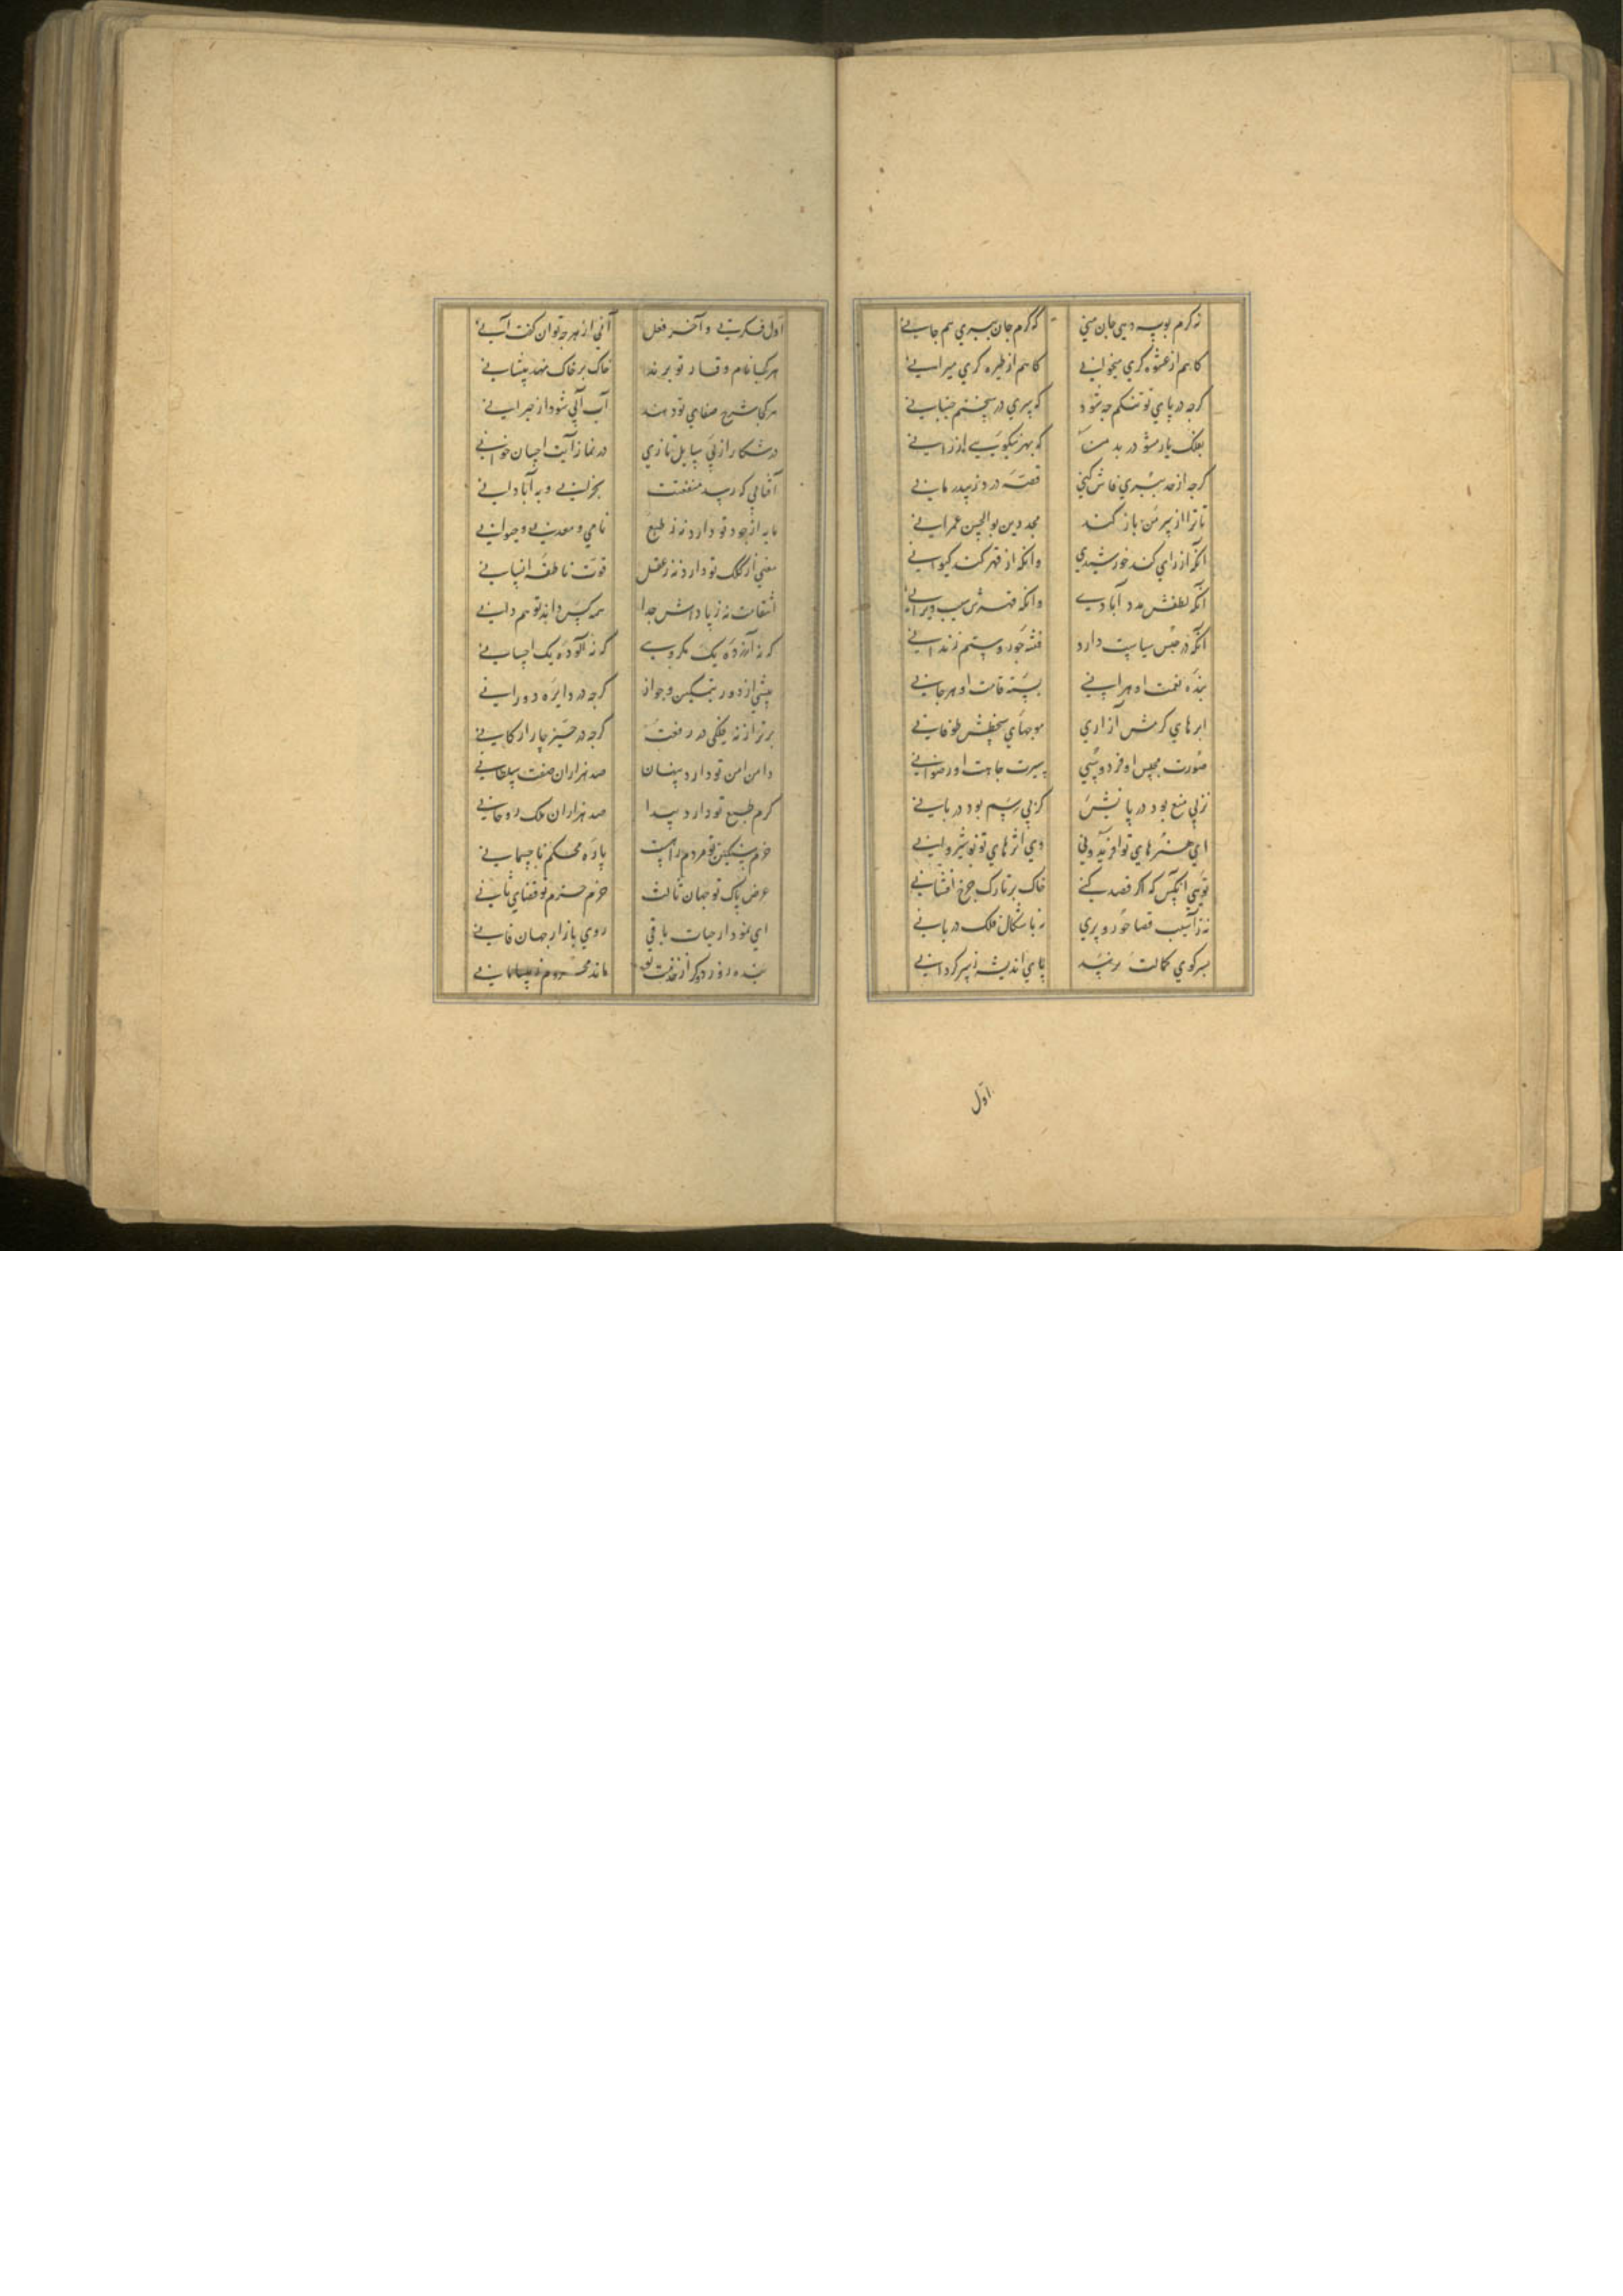 نه کرم بوسه دهی جان منی که کرم جان ببری هم جانی
کاهم از عشوه کری میخوانی کاهم از طیره کری میرانی
کرچه در پای تو تنکم چه شود که سری در سخنم جنبانی
بفلک یار مشو در بد من که بهر نیکویی ارزانی
کرچه از حد ببری فاش کنی قصه درد ز بیدرمانی
تا ترا از سر من باز کند مجد دین بوالحسن عمرانی
آنکه از رای کند خورشیدی وانکه از قهر کند کیوانی
آنکه لطفش مدد آبادی وانکه قهرش سبب ویرانی
آنکه در حبس سیاست دارد فتنه جور و ستم زندانی
بنده نعمت او هر انسی بسته قامت او هر جانی
ابرهای کرمش آزاری موجهای سخطش طوفانی
صورت مجلس او فردوسی سیرت حاجت او رضوانی
نز پی منع بود دربانش کز پی رسم بود دربانی
ای هنرهای تو افریدونی وی اثرهای تو نوشیروانی
تویی انکس که اکر قصد کنی خاک بر تارک چرخ افشانی
نه ز آسیب قضا خور و بری نه باشکال فلک درمانی
بسر کوی کمالت نرسد پای اندیشه ز سرکردانی
اول
اول فکرتی و آخر فعل آنی از هر چه توان کفت آنی
هر کجا نام وقار تو برند خاک بر خاک نهد پیشانی
هر کجا شرح صفای تو دهند آب آبی شود از حیرانی
در شکار از پی سایل تازی در نماز آیت احسان خوانی
آفتابی که رسد منفعتت بخرابی و به آبادانی
مایه از جود تو دارد نه ز طبع نامی و معدنی و حیوانی
معنی از کلک تو دارد نه ز عقل قوت ناطقه انسانی
التفات نه ز پاداش جدا همه کس داند تو هم دانی
که نه آزرده یک مکروهی که نه آلوده یک احسانی
پیشی از دور بتمکین و جواز کرچه در دایره دورانی
برتر از نه فلکی در رفعت کرچه در حیز چار ارکانی
دامن امن تو دارد پنهان صد هزاران صفت سلطانی
کرم طبع تو دارد پیدا صد هزاران ملک روحانی
حزم سنکین تو مردم راست پاره محکم ناجسمانی
عرض پاک تو جهان ثالث عزم جزم تو قضای ثانی
ای نمودار حیات باقی روی بازار جهان فانی
بنده روزی دو کر از خدمت تو ماند محروم ز بیسامانی